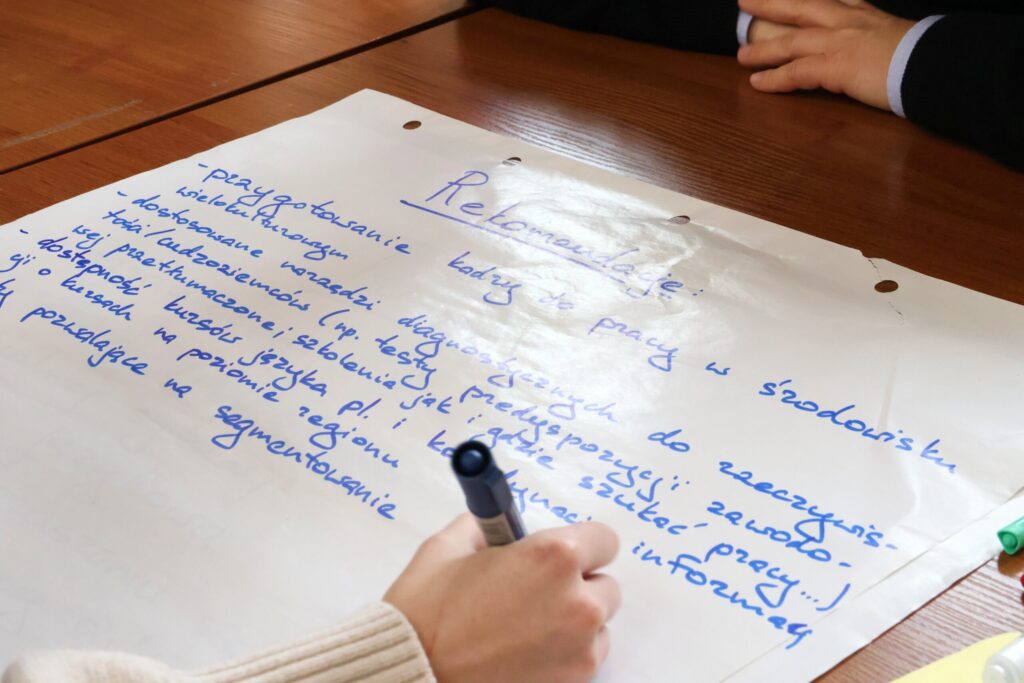 Rekomendacje:
- przygotowanie kadry do pracy w środowisku
wielokulturowym
- dostosowane narzędzi diagnostycznych do rzeczywis-
tości/cudzoziemców (np. testy predyspozycji zawodo-
wej przetłumaczone, szkolenia jak i gdzie szukać pracy...)
- dostępność kursów języka pl. i informacji
gji o kursach na poziomie regionu
pozwalające na segmentowanie